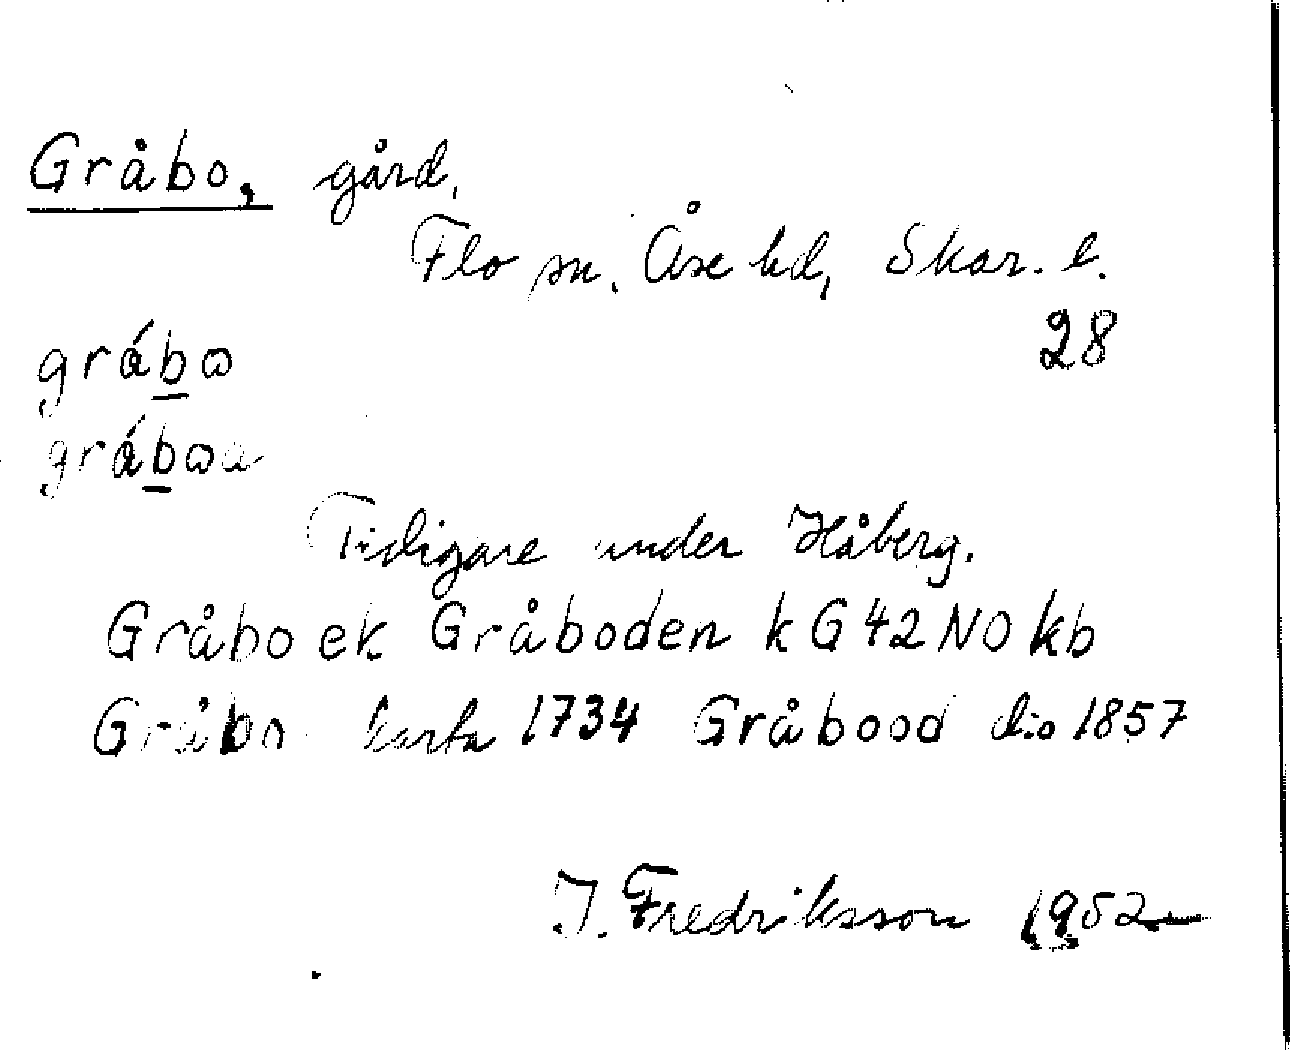 Gråbo, gård,
Flo sn. Åse hd, Skar. l.
28
gráb̲ω
gráb̲ωa
Tidigare under Håberg.
Gråbo ek Gråboden k G42NO kb
Gråbo karta 1734 Gråbood d:o 1857
J. Fredriksson 1952